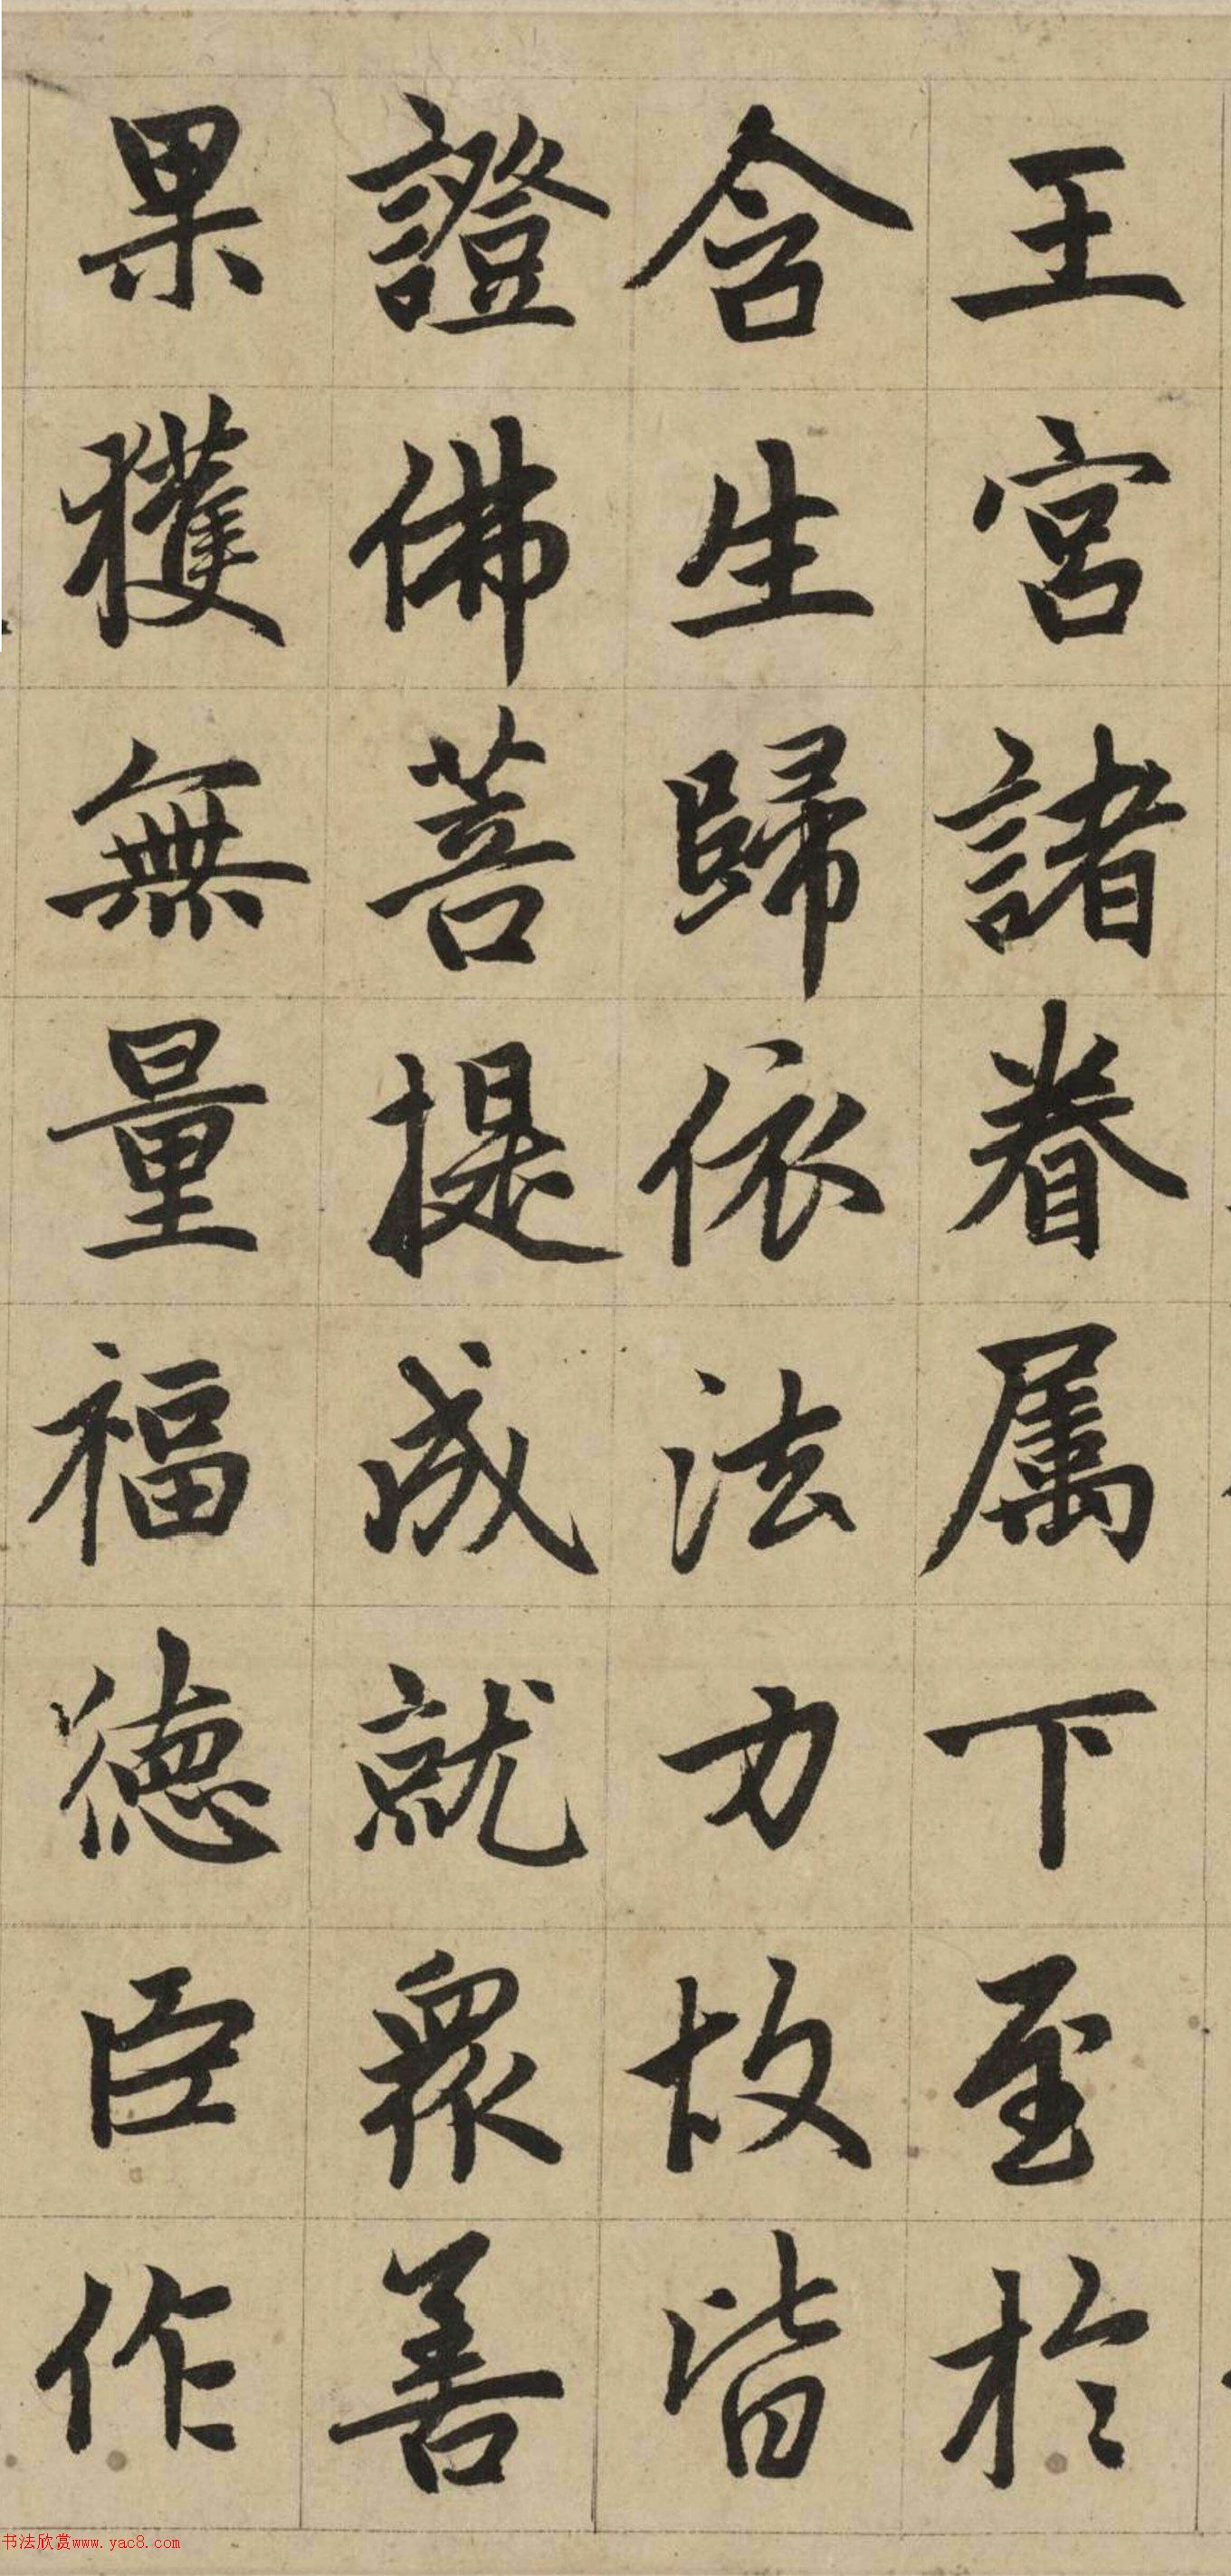 王宮諸眷属下至於
含生歸依法力故皆
證佛菩提成就眾善
果獲無量福德臣作
书法欣赏www.yac8.com